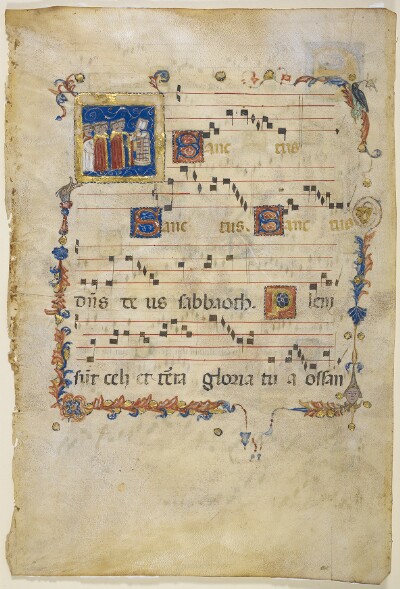 Sanc tus
Sanc tus. Sanc tus
dn̄s de us sabbaoth. Pleni
sūt celi et t̄ra gloria tu a ossan